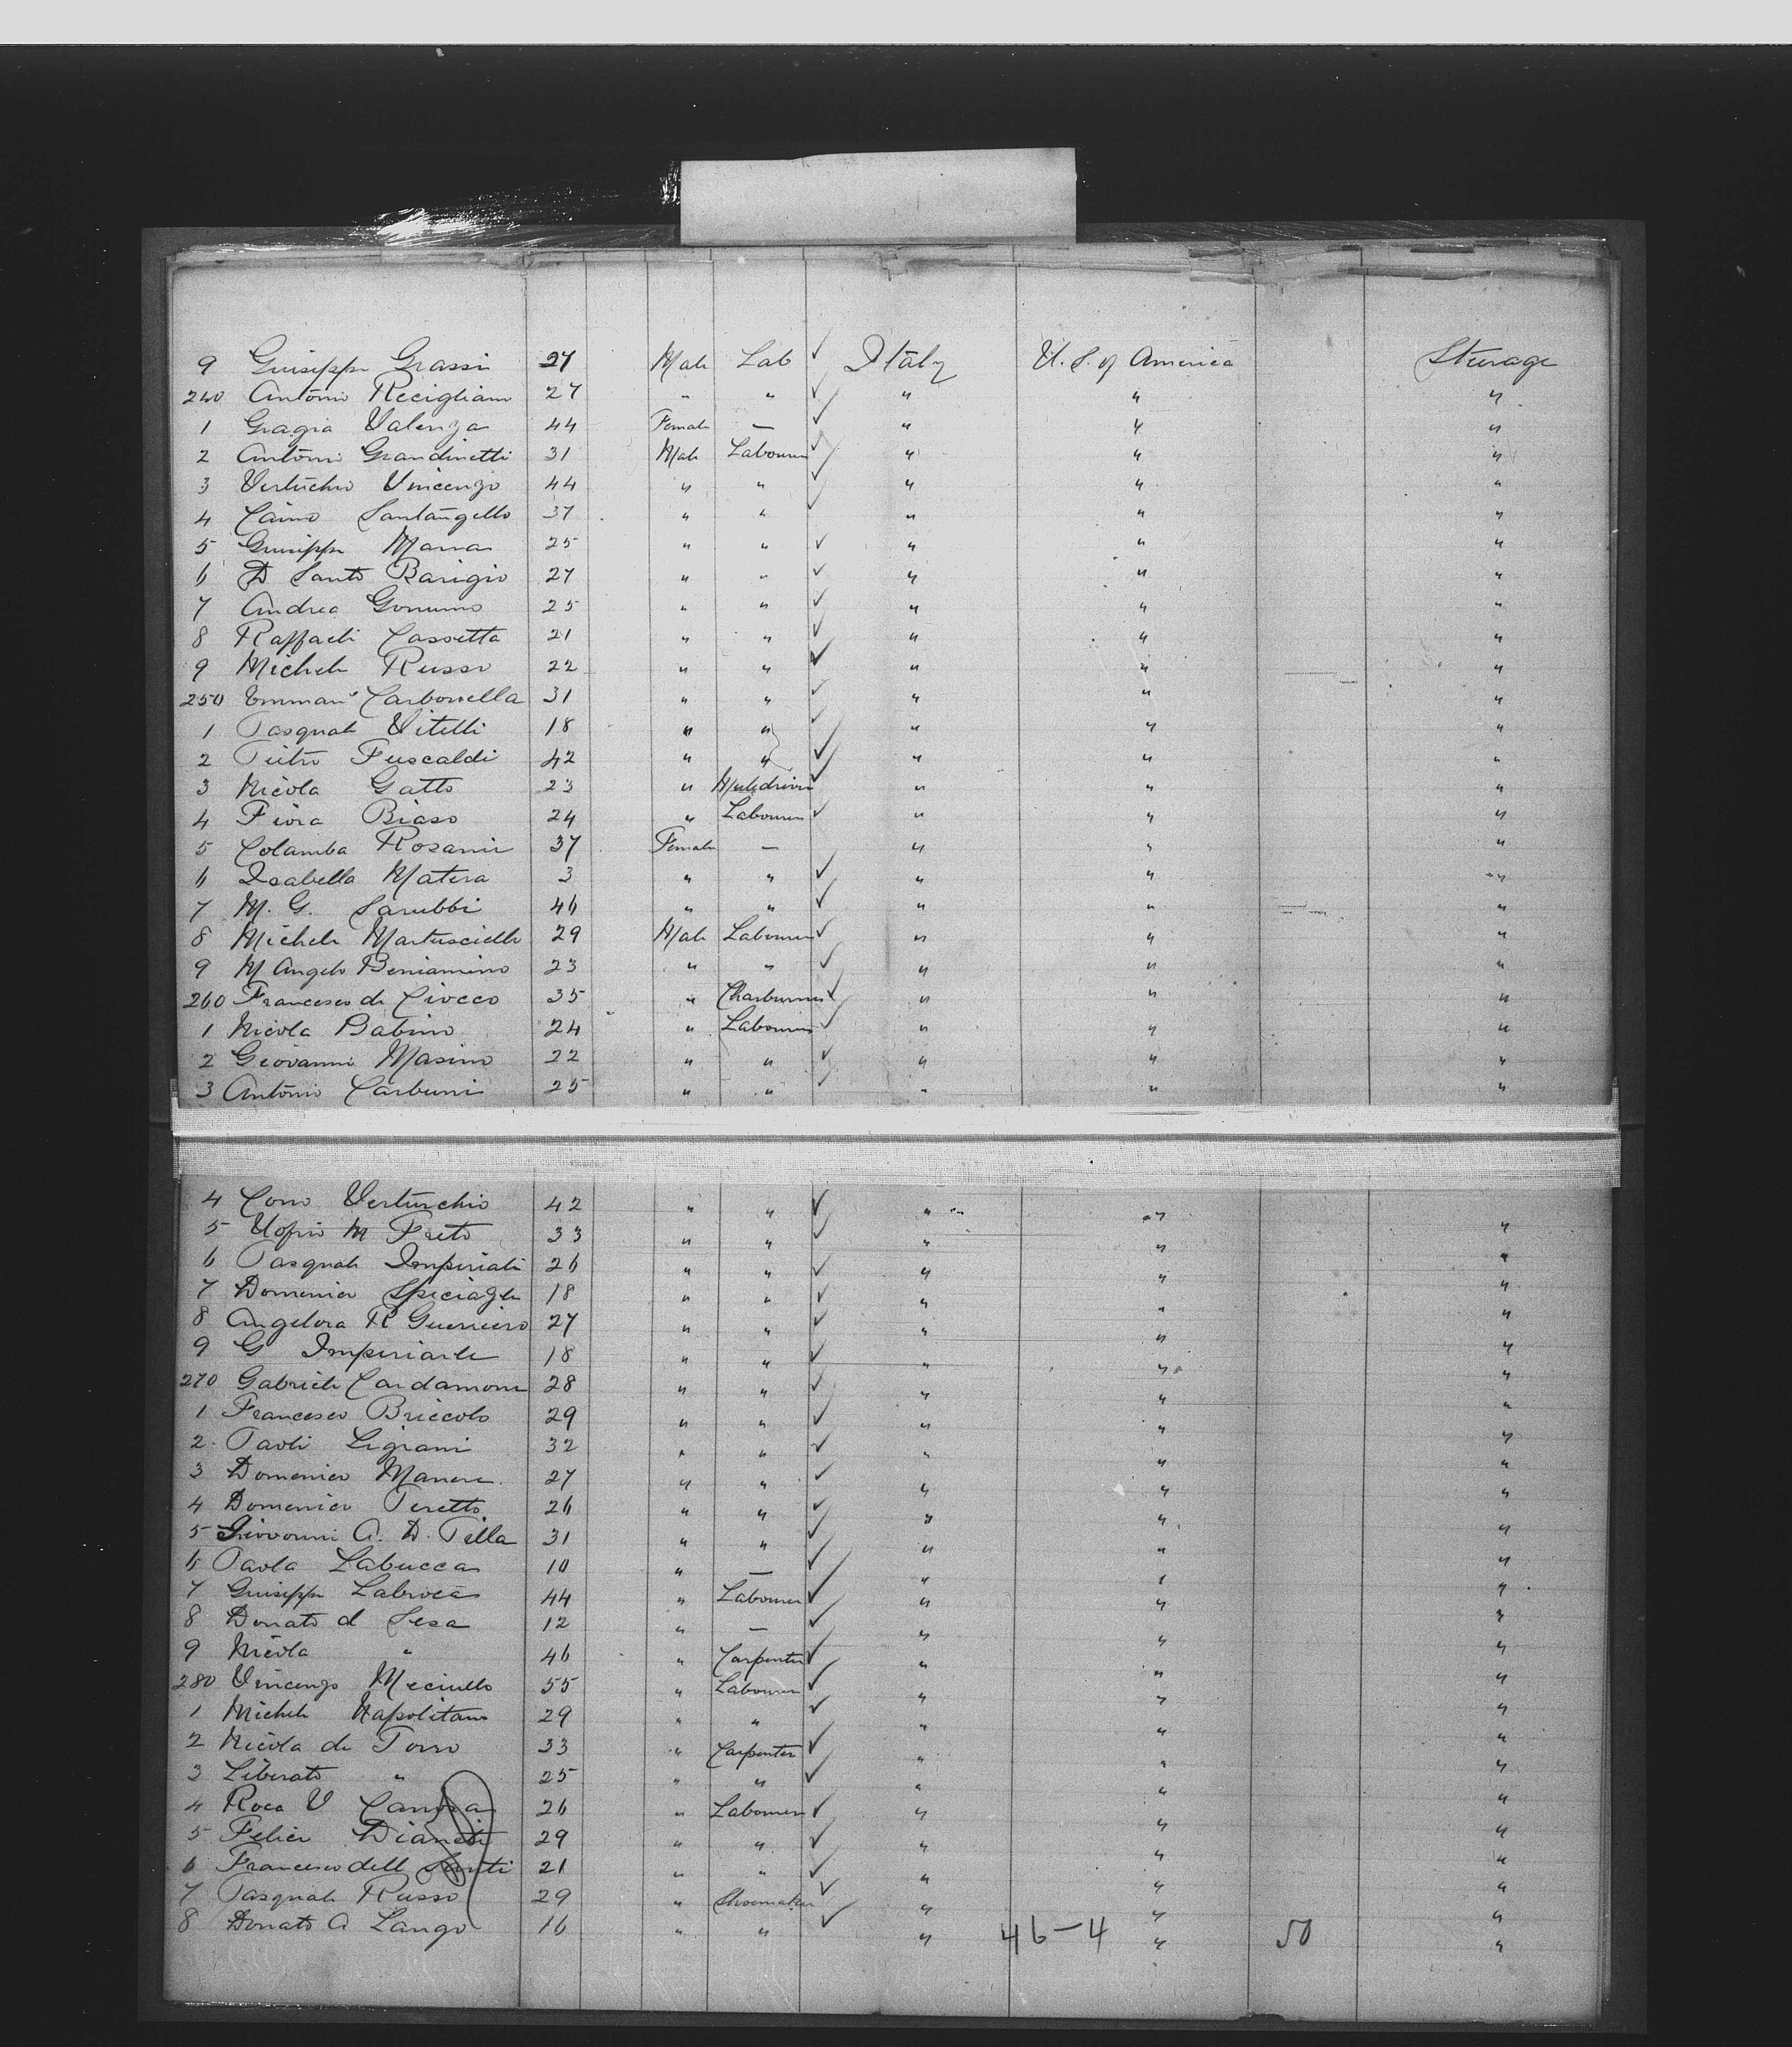 9 Guiseppe Grassi 27 Male Lab ✓ Italy U. S. of America Steerage
240 Antonio Recigliano 27 " " ✓ " " "
1 Gragia Valenza 44 Female — ✓ " " "
2 Antonio Grandinetti 31 Male Labourer ✓ " " "
3 Vertuchio Vincenzo 44 " " ✓ " " "
4 Caino Santangello 37 " " ✓ " " "
5 Guiseppe Marra 25 " " ✓ " " "
6 D Santo Barigio 27 " " ✓ " " "
7 Andrea 25 " " ✓ " " "
8 Raffaele Cassetta 21 " " ✓ " " "
9 Michele Russo 22 " " ✓ " " "
250 Carbonella 31 " " ✓ " " "
1 Pasquale Vitelli 18 " " ✓ " " "
2 Pietro Fuscaldi 42 " " ✓ " " "
3 Nicola Gatto 23 " Muledriver ✓ " " "
4 Fiora Biaso 24 " Labourer ✓ " " "
5 Colamba 37 Female — " " "
6 Isabella Matera 3 " " ✓ " " "
7 M. G. Sarubbi 46 " " ✓ " " "
8 Michele Martusciello 29 Male Labourer ✓ " " "
9 M Angelo Beniamino 23 " " ✓ " " "
260 Francesco de Ciocco 35 " Charburner ✓ " " "
1 Nicola Babino 24 " Labourer ✓ " " "
2 Geovanni Masino 22 " " ✓ " " "
3 Antonio Carbuni 25 " " ✓ " " "
4 Cono Verturchio 42 " " ✓ " " "
5 M Preto 33 " " ✓ " " "
6 Pasquale Imperiale 26 " " ✓ " " "
7 Domenico 18 " " ✓ " " "
8 Angelora R Guerriero 27 " " ✓ " " "
9 G Imperiarle 18 " " ✓ " " "
270 Gabriele Cardamone 28 " " ✓ " " "
1 Francesco Briccolo 29 " " ✓ " " "
2 Paoli Ligrani 32 " " ✓ " " "
3 Domenico 27 " " ✓ " " "
4 Domenico Peretto 26 " " ✓ " " "
5 Giovonni A. D. Pilla 31 " " ✓ " " "
6 Paola Labucca 10 " — ✓ " " "
7 Guiseppe Labroca 44 " Labourer ✓ " " "
8 Donato d Sesa 12 " — ✓ " " "
9 Nicola " 46 " Carpenter ✓ " " "
280 Vincenzo 55 " Labourer ✓ " " "
1 Michele Napolitano 29 " " ✓ " " "
2 Nicola de Torro 33 " Carpenter ✓ " " "
3 Liberato " 25 " " ✓ " " "
4 Roca V 26 " Labourer ✓ " " "
5 Felice 29 " " ✓ " " "
6 Francesco dell Santi 21 " " ✓ " " "
7 Pasquale Russo 29 " Shoemaker ✓ " " "
8 Donato A Lango 16 " " ✓ " 46-4 " 50 "